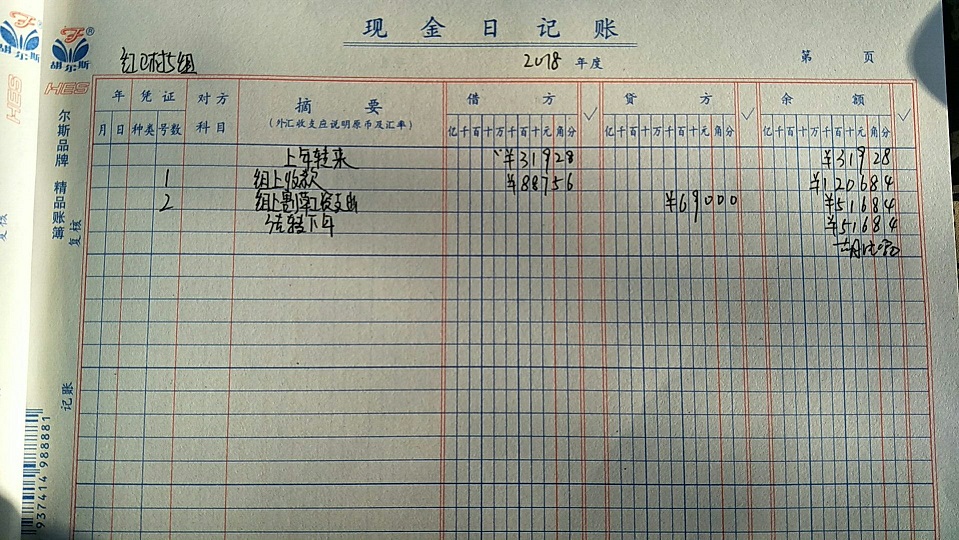 现金日记账
红 村5组
2018 年度
第 页
年 凭证 对方 摘要 借方 ✓ 贷方 ✓ 余额 ✓
月 日 种类 号数 科目 (外汇收支应说明原币及汇率) 亿千百十万千百十元角分 亿千百十万千百十元角分 亿千百十万千百十元角分
上年转来 ¥31928 ¥31928
1 组上收款 ¥88756 ¥120684
2 组上割草工资支出 ¥69000 ¥51684
结转下年 ¥51684
胡尔斯
HES
胡尔斯®
HES
尔斯品牌 精品账簿
复核
复核
记账
937414 988881